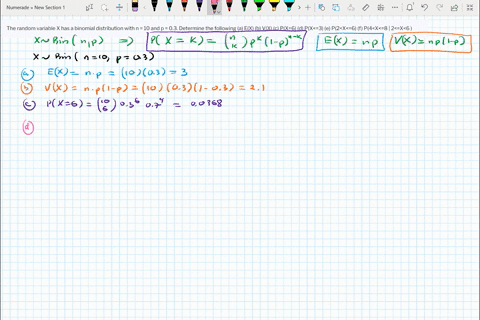 Numerade » New Section 1
The random variable X has a binomial distribution with n = 10 and p = 0.3. Determine the following (a) E(X) (b) V(X) (c) P(X=6) (d) P(X>=3) (e) P(2<X<=6) (f) P(4<X<=8 | 2<=X<=6.)
X ~ Bin(n,p) ⇒ P(X = K) = (n K) p^K (1-p)^n-K E(X) = np V(X) = np(1-p)
X ~ Bin(n=10, p=0.3)
(a) E(X) = n·p = (10)(0.3) = 3
(b) V(X) = n·p(1-p) = (10)(0.3)(1-0.3) = 2.1
(c) P(X=6) = (10 6) 0.3^6 0.7^4 = 0.0368
(d)